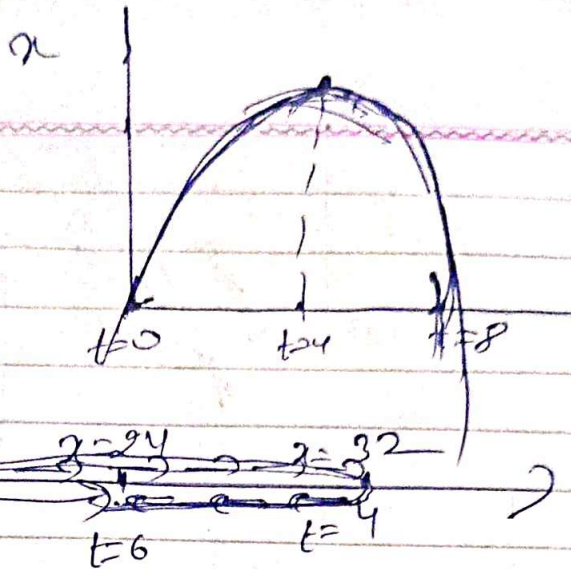 x
t=0 t=4 t=8
x=24 x=32
t=6 t=4